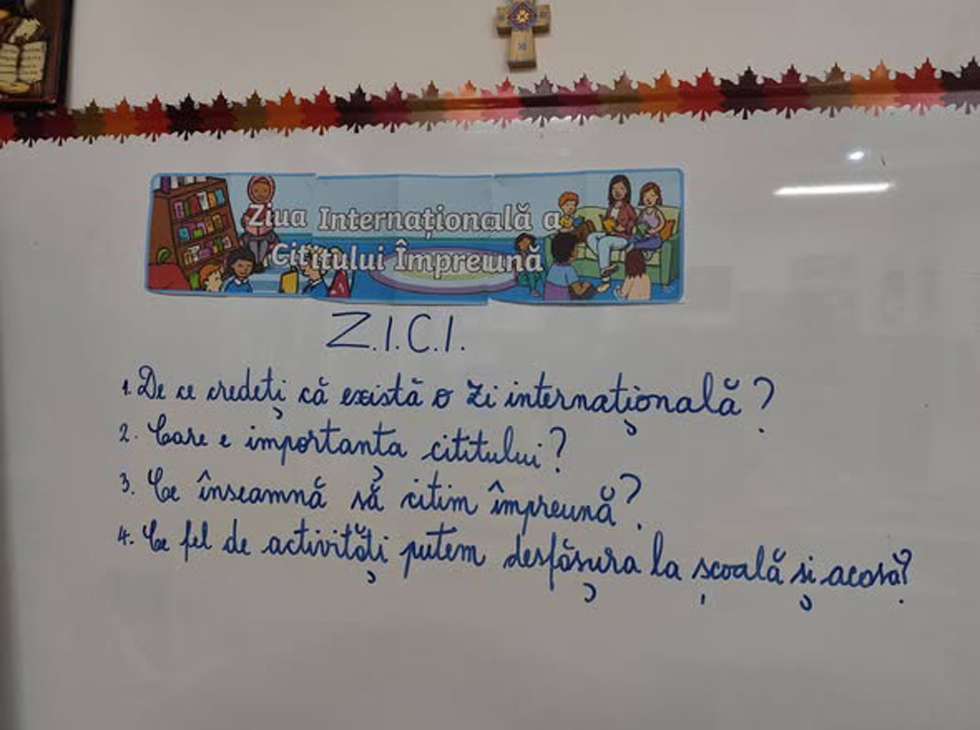 Ziua Internațională a
Cititului Împreună
Z.I.C.I.
1. De ce credeți că există o zi internațională?
2. Care e importanța cititului?
3. Ce înseamnă să citim împreună?
4. Ce fel de activități putem desfășura la școală și acasă?